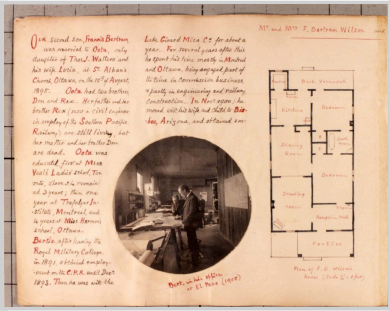 Our second son, Francis Bertram
was married to Oota, only
daughter of Thos. J. Watters and
his wife Lotia, at St. Albans
Church, Ottawa, on the 14th of August,
1895. Oota had two brothers,
Don and Rex. Her father and her
brother Rex (now a civil engineer
in employ of the Southern Pacific
Railway) are still living, but
her mother and her brother Don
are dead. Oota was
educated, first at Miss
Veal's Ladies school, Tor-
onto, where she remain-
ed 3 years; then one
year at Trafalgar In-
stitute, Montreal, and
years at Miss Harmon's
school, Ottawa.
Bertie, after leaving the
Royal Military College
in 1891, obtained employ-
ment on the C.P.R. until Decr
1893. Then he was with the
Lake Girard Mica Co. for about a
year. For several years after this
he spent his time mostly in Montreal
and Ottawa, being engaged part of
the time in Commission business,
& partly in engineering and railway
construction. In Nov. upon, he
moved with his wife and child to Bis-
bee, Arizona, and obtained em-
Bert, in his office
at El Paso (1905)
Mr. and Mrs. F. Bertram Willson and
Back Verandah
Kitchen
Bedroom
Dining
Room
Drawing
Room
Bedroom
Porch
Plan of F. B. Willson's
house